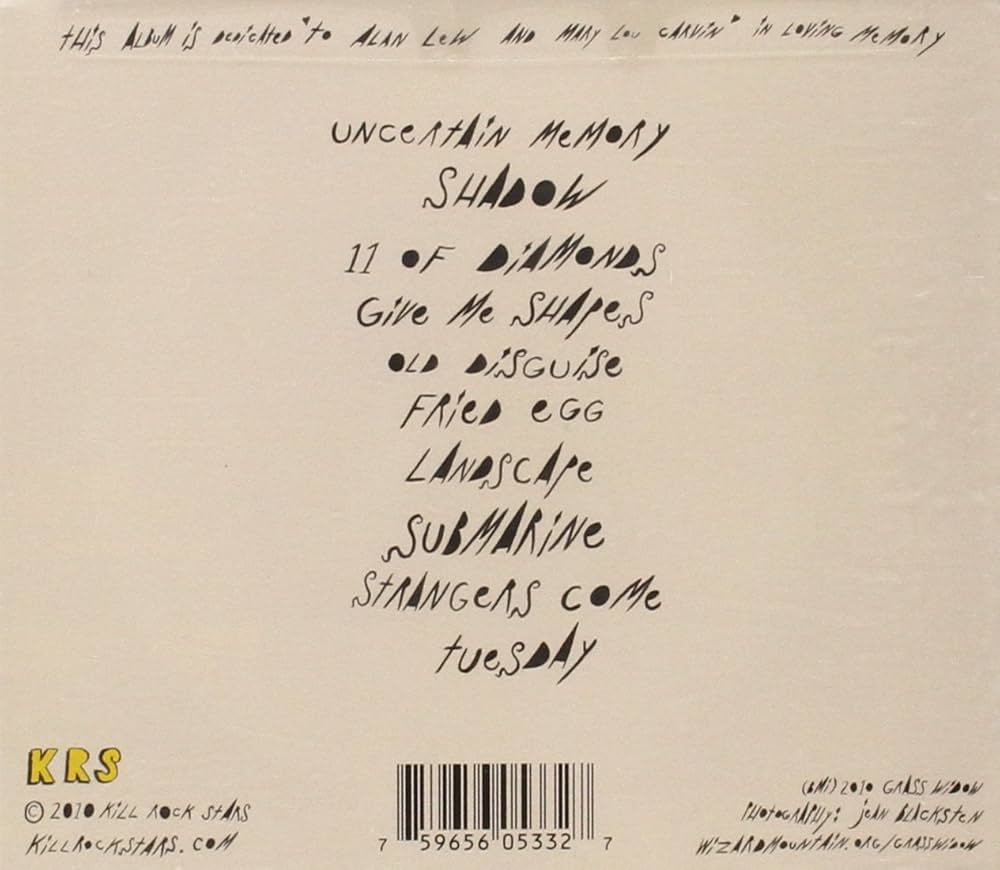 THIS ALBUM IS DEDICATED TO ALAN LEW AND MARY LOU CARVIN IN LOVING MEMORY
UNCERTAIN MEMORY
SHADOW
11 OF DIAMONDS
GIVE ME SHAPES
OLD DISGUISE
FRIED EGG
LANDSCAPE
SUBMARINE
STRANGERS COME
TUESDAY
KRS
© 2010 KILL ROCK STARS
KILLROCKSTARS.COM
7 59656 05332 7
(BMI) 2010 GRASS WIDOW
PHOTOGRAPHY: JEAN BLACKSTEN
WIZARDMOUNTAIN.ORG/GRASSWIDOW